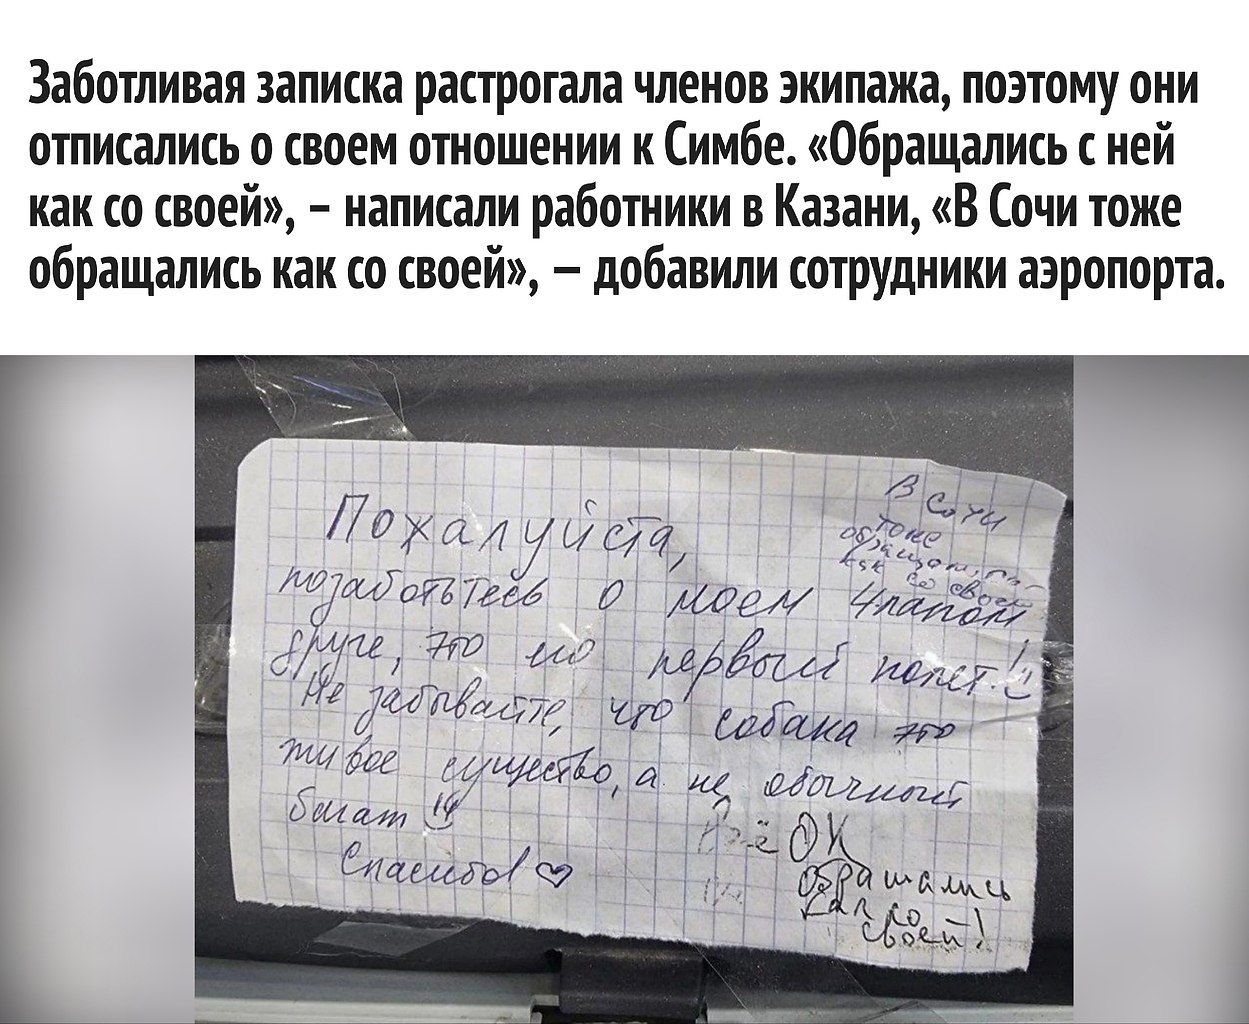 Заботливая записка растрогала членов экипажа, поэтому они
отписались о своем отношении к Симбе. «Обращались с ней
как со своей», – написали работники в Казани, «В Сочи тоже
обращались как со своей», – добавили сотрудники аэропорта.
Пожалуйста,
позаботьтесь о моем 4лапом
друге, это его первый полет!
Не забывайте, что собака это
живое существо, а не обычный
багаж
Спасибо!
В Сочи
тоже
обращались
как со своей
Всё ОК
Обращались
как со
своей!